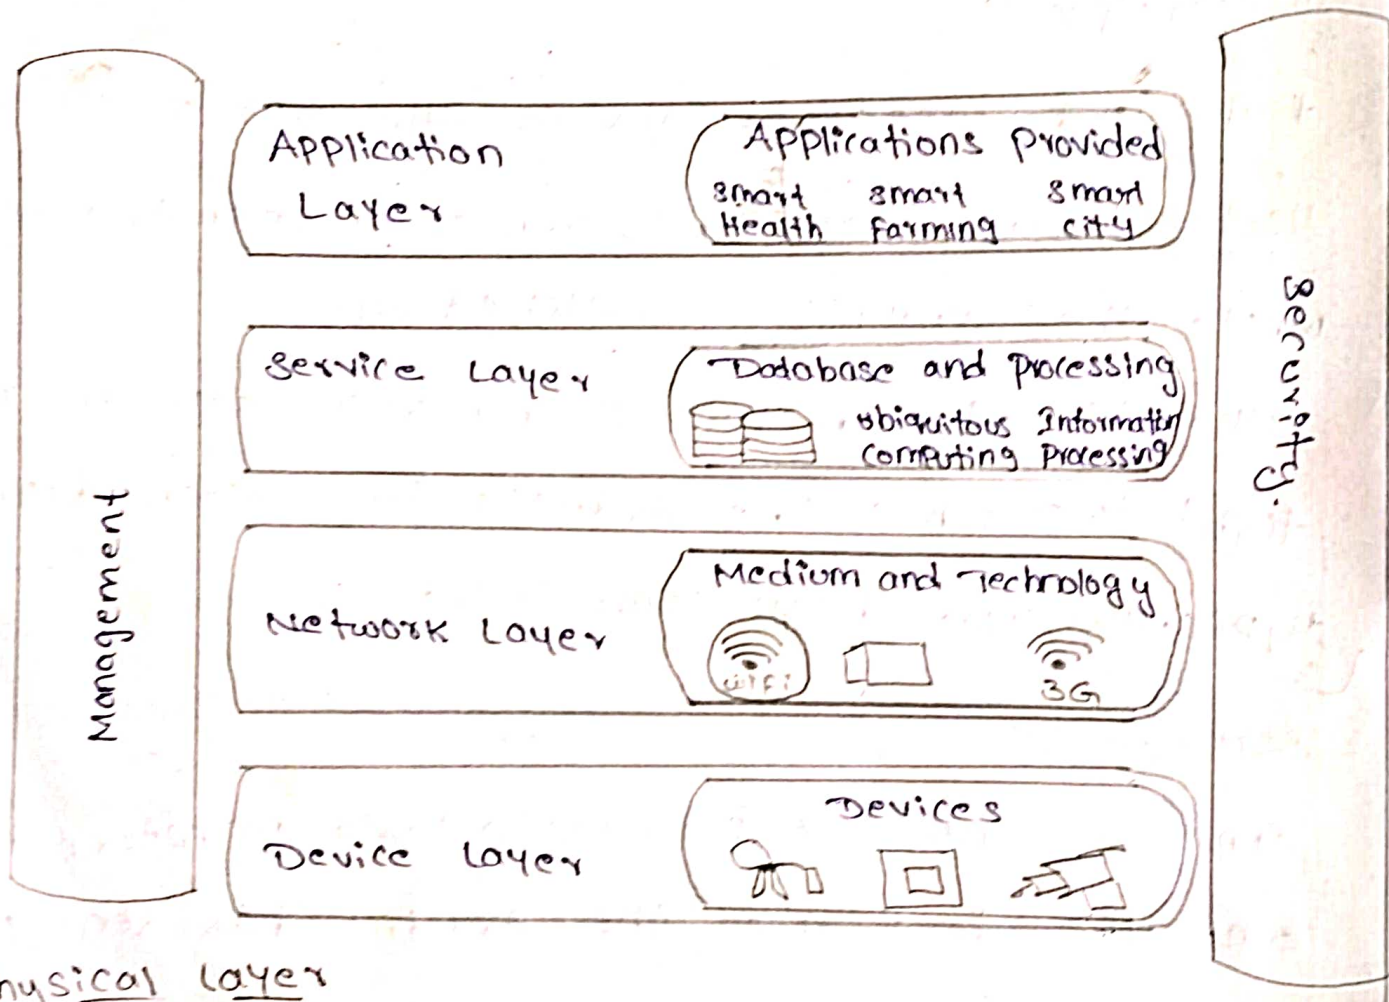 Management
Application
Layer
Applications Provided
Smart Smart Smart
Health Farming City
Service Layer
Database and Processing
Ubiquitous Informatin
Computing Processing
Network Layer
Medium and Technology
WiFi
3G
Device Layer
Devices
Security.
hysical Layer